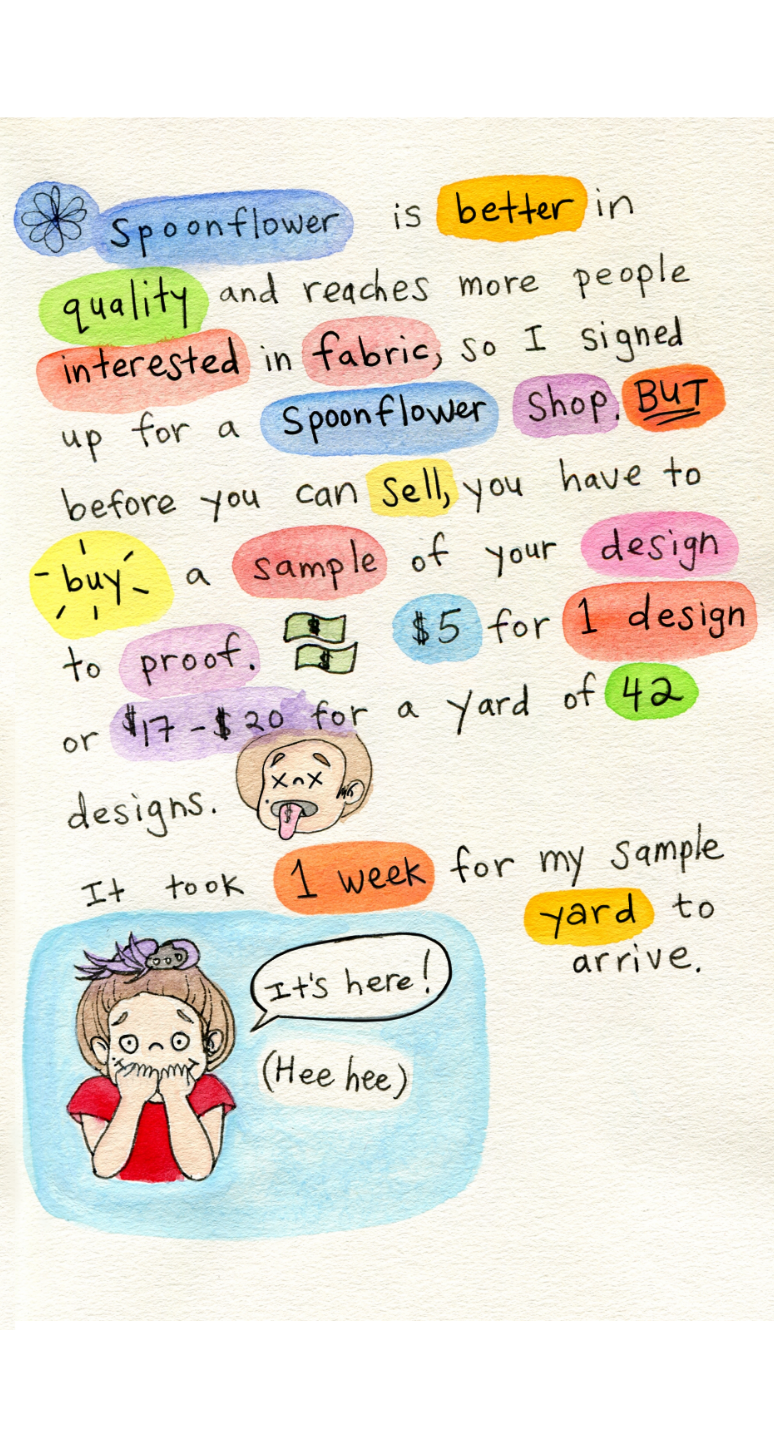 Spoonflower is better in
quality and reaches more people
interested in fabric, so I signed
up for a Spoonflower Shop. BUT
before you can sell, you have to
buy a sample of your design
to proof. $5 for 1 design
or $17-$20 for a yard of 42
designs.
It took 1 week for my sample
yard to
arrive.
It's here!
(Hee hee)